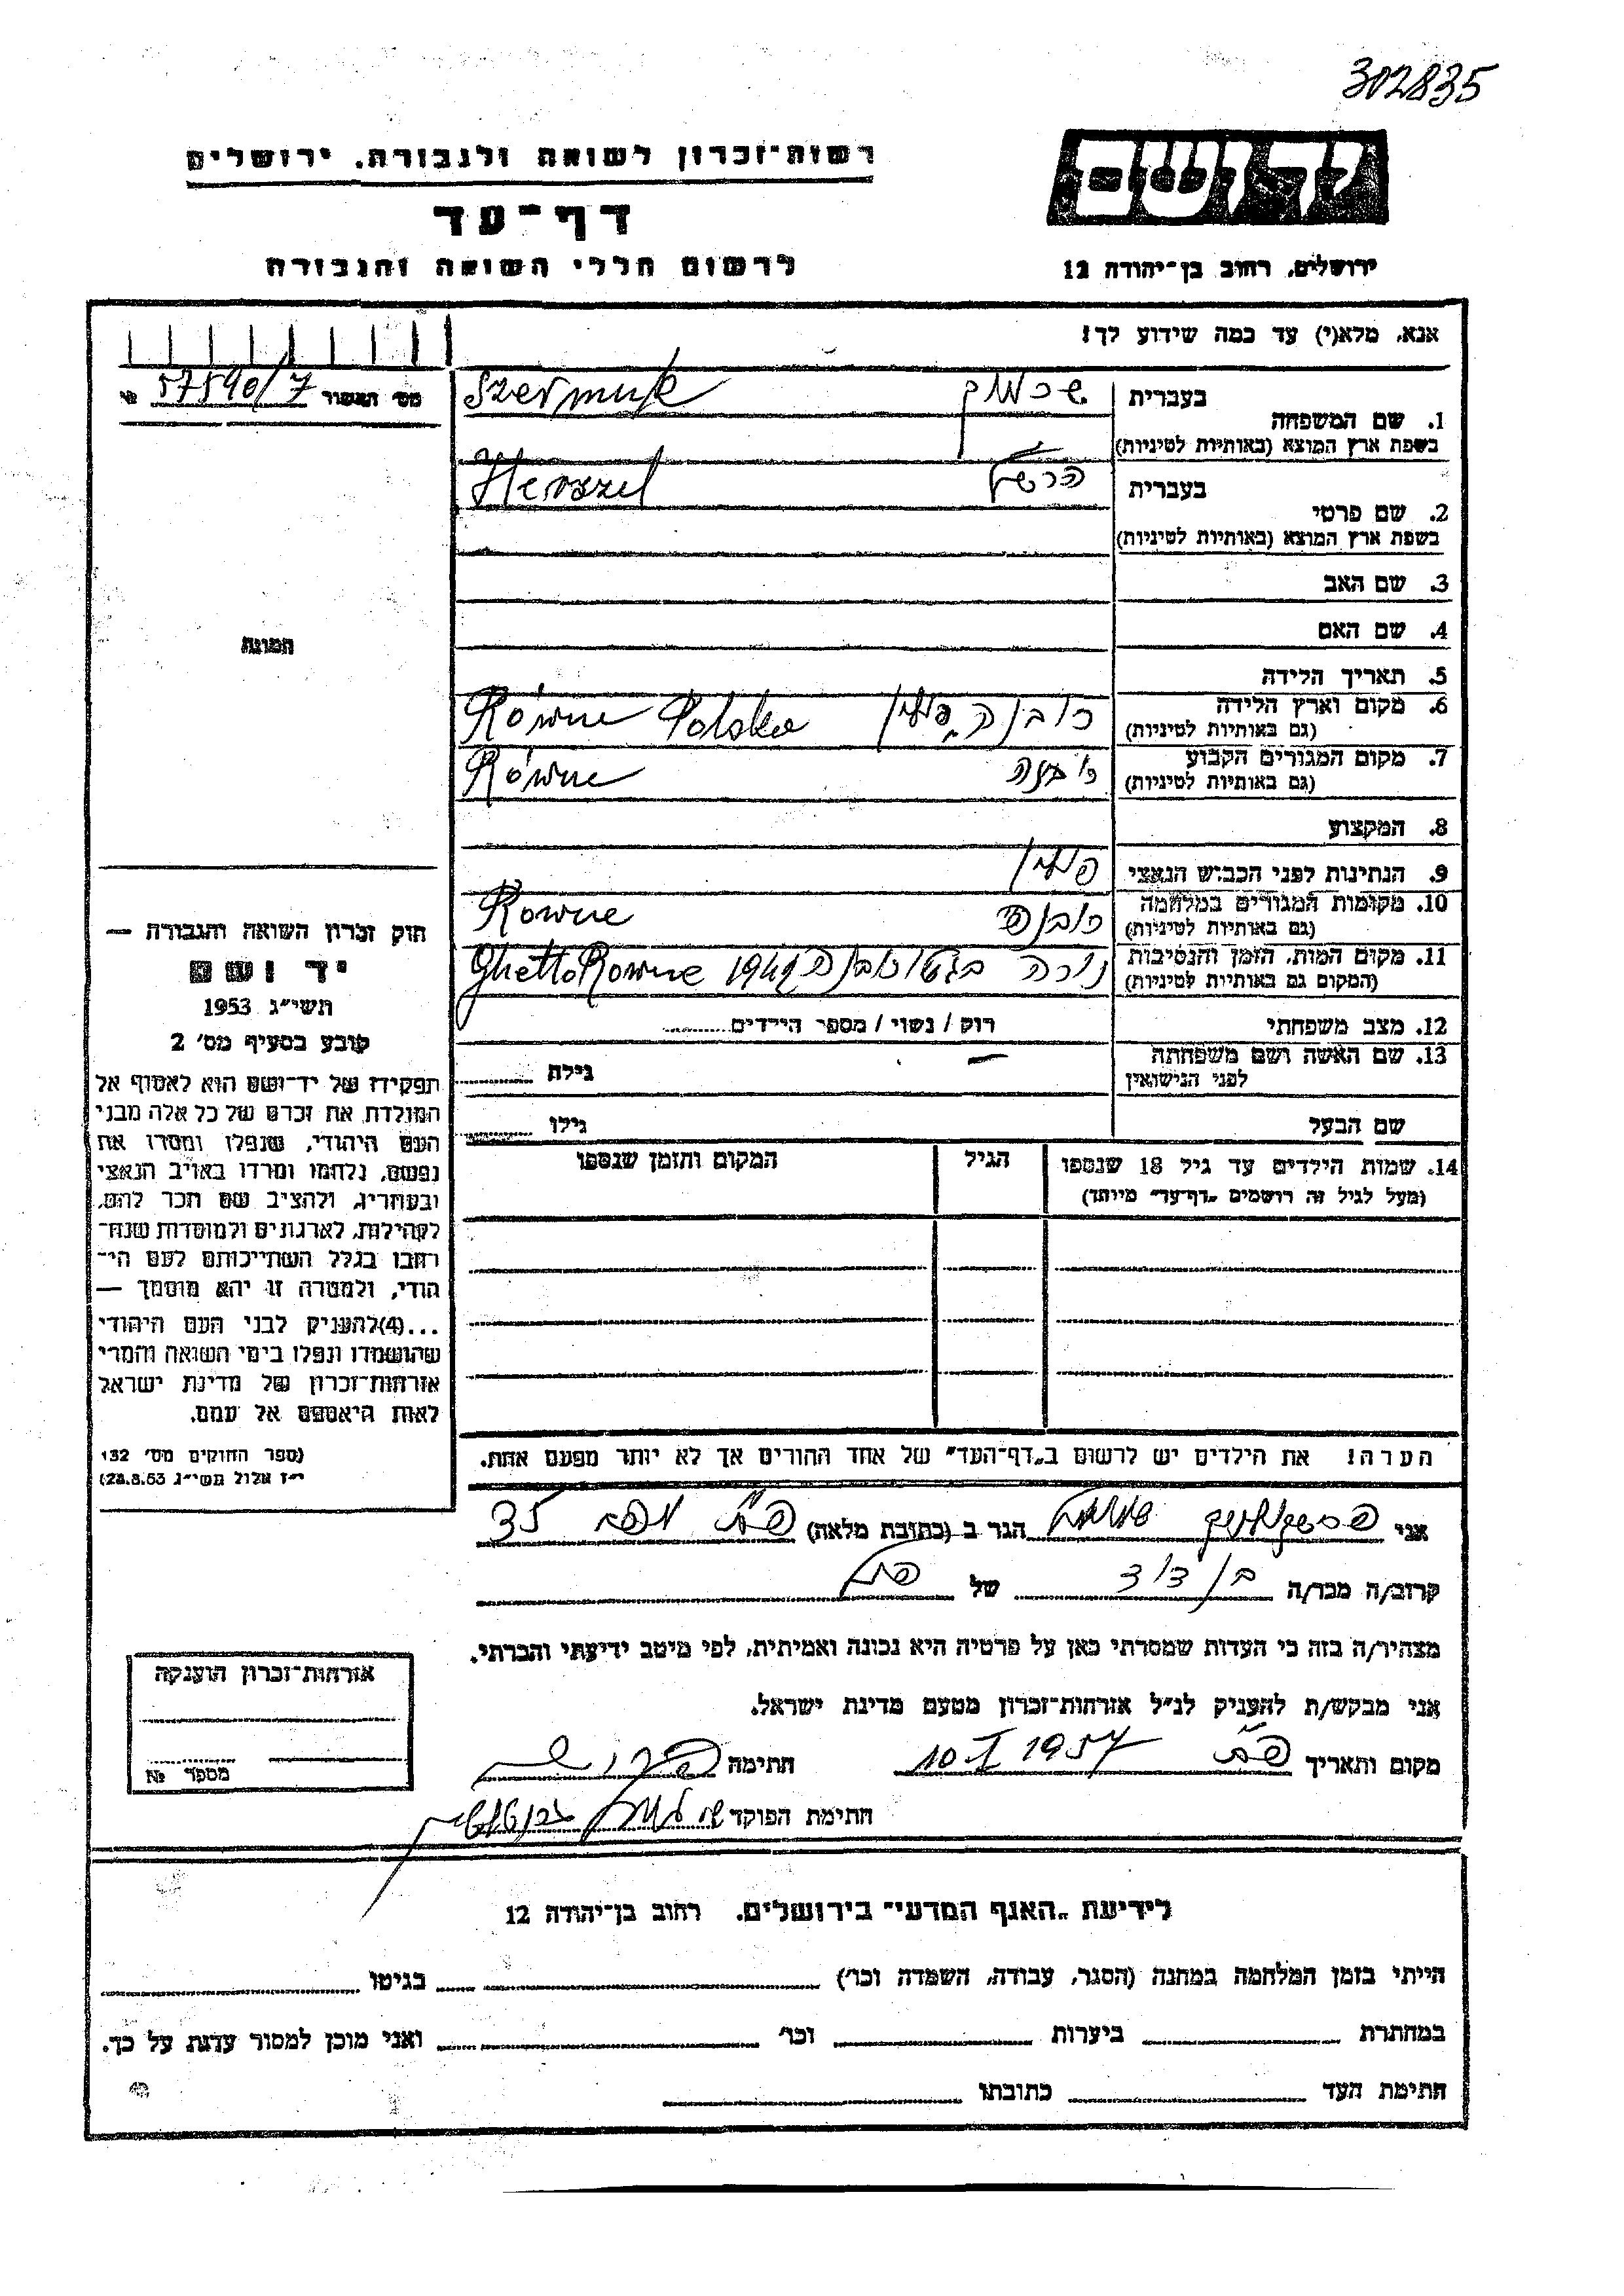 302835
רשות-זכרון לשואה ולגבורה, ירושלים
דף-עד
לרשום חללי השואה והגבורה
יד ושם
ירושלים, רחוב בן-יהודה 12
אנא, מלא(י) עד כמה שידוע לך!
מס' האשור 57590/7 №
1. שם המשפחה בעברית שרמוק Szermuk
בשפת ארץ המוצא (באותיות לטיניות)
2. שם פרטי בעברית הרשל Herszel
בשפת ארץ המוצא (באותיות לטיניות)
3. שם האב
4. שם האם
5. תאריך הלידה
6. מקום וארץ הלידה רובנה פולין Równe Polska
(גם באותיות לטיניות)
7. מקום המגורים הקבוע רובנה Równe
(גם באותיות לטיניות)
8. המקצוע
9. הנתינות לפני הכבוש הנאצי פולין
10. מקומות המגורים במלחמה רובנה Rowne
(גם באותיות לטיניות)
11. מקום המות, הזמן והנסיבות נורה בגטו רובנה 1942 Ghetto Rowne
(המקום גם באותיות לטיניות)
12. מצב משפחתי רוק / נשוי / מספר הילדים
13. שם האשה ושם משפחתה — גילה
לפני הנישואין
שם הבעל גילו
14. שמות הילדים עד גיל 18 שנספו הגיל המקום והזמן שנספו
(מעל לגיל זה רושמים „דף-עד" מיוחד)
הערה! את הילדים יש לרשום ב„דף-העד" של אחד ההורים אך לא יותר מפעם אחת.
התמונה
חוק זכרון השואה והגבורה —
יד ושם
תשי"ג 1953
קובע בסעיף מס' 2
תפקידו של יד-ושם הוא לאסוף אל
המולדת את זכרם של כל אלה מבני
העם היהודי, שנפלו ומסרו את
נפשם, נלחמו ומרדו באויב הנאצי
ובעוזריו, ולהציב שם וזכר להם,
לקהילות, לארגונים ולמוסדות שנח-
רבו בגלל השתייכותם לעם הי-
הודי, ולמטרה זו יהא מוסמך —
...(4) להעניק לבני העם היהודי
שהושמדו ונפלו בימי השואה והמרי
אזרחות-זכרון של מדינת ישראל
לאות היאספם אל עמם.
(ספר החוקים מס' 132
י"ז אלול תשי"ג 28.8.53)
אני שמואל הגר ב (כתובת מלאה) 35
קרוב/ה מכר/ה בן דוד של
מצהיר/ה בזה כי העדות שמסרתי כאן על פרטיה היא נכונה ואמיתית, לפי מיטב ידיעתי והכרתי.
אני מבקש/ת להעניק לנ"ל אזרחות-זכרון מטעם מדינת ישראל.
מקום ותאריך 10 I 1957 חתימה
חתימת הפוקד
אזרחות-זכרון הוענקה
מספר №
לידיעת „האגף המדעי" בירושלים, רחוב בן-יהודה 12
הייתי בזמן המלחמה במחנה (הסגר, עבודה, השמדה וכו') בגיטו
במחתרת ביערות וכו' ואני מוכן למסור עדות על כך.
חתימת העד כתובתו